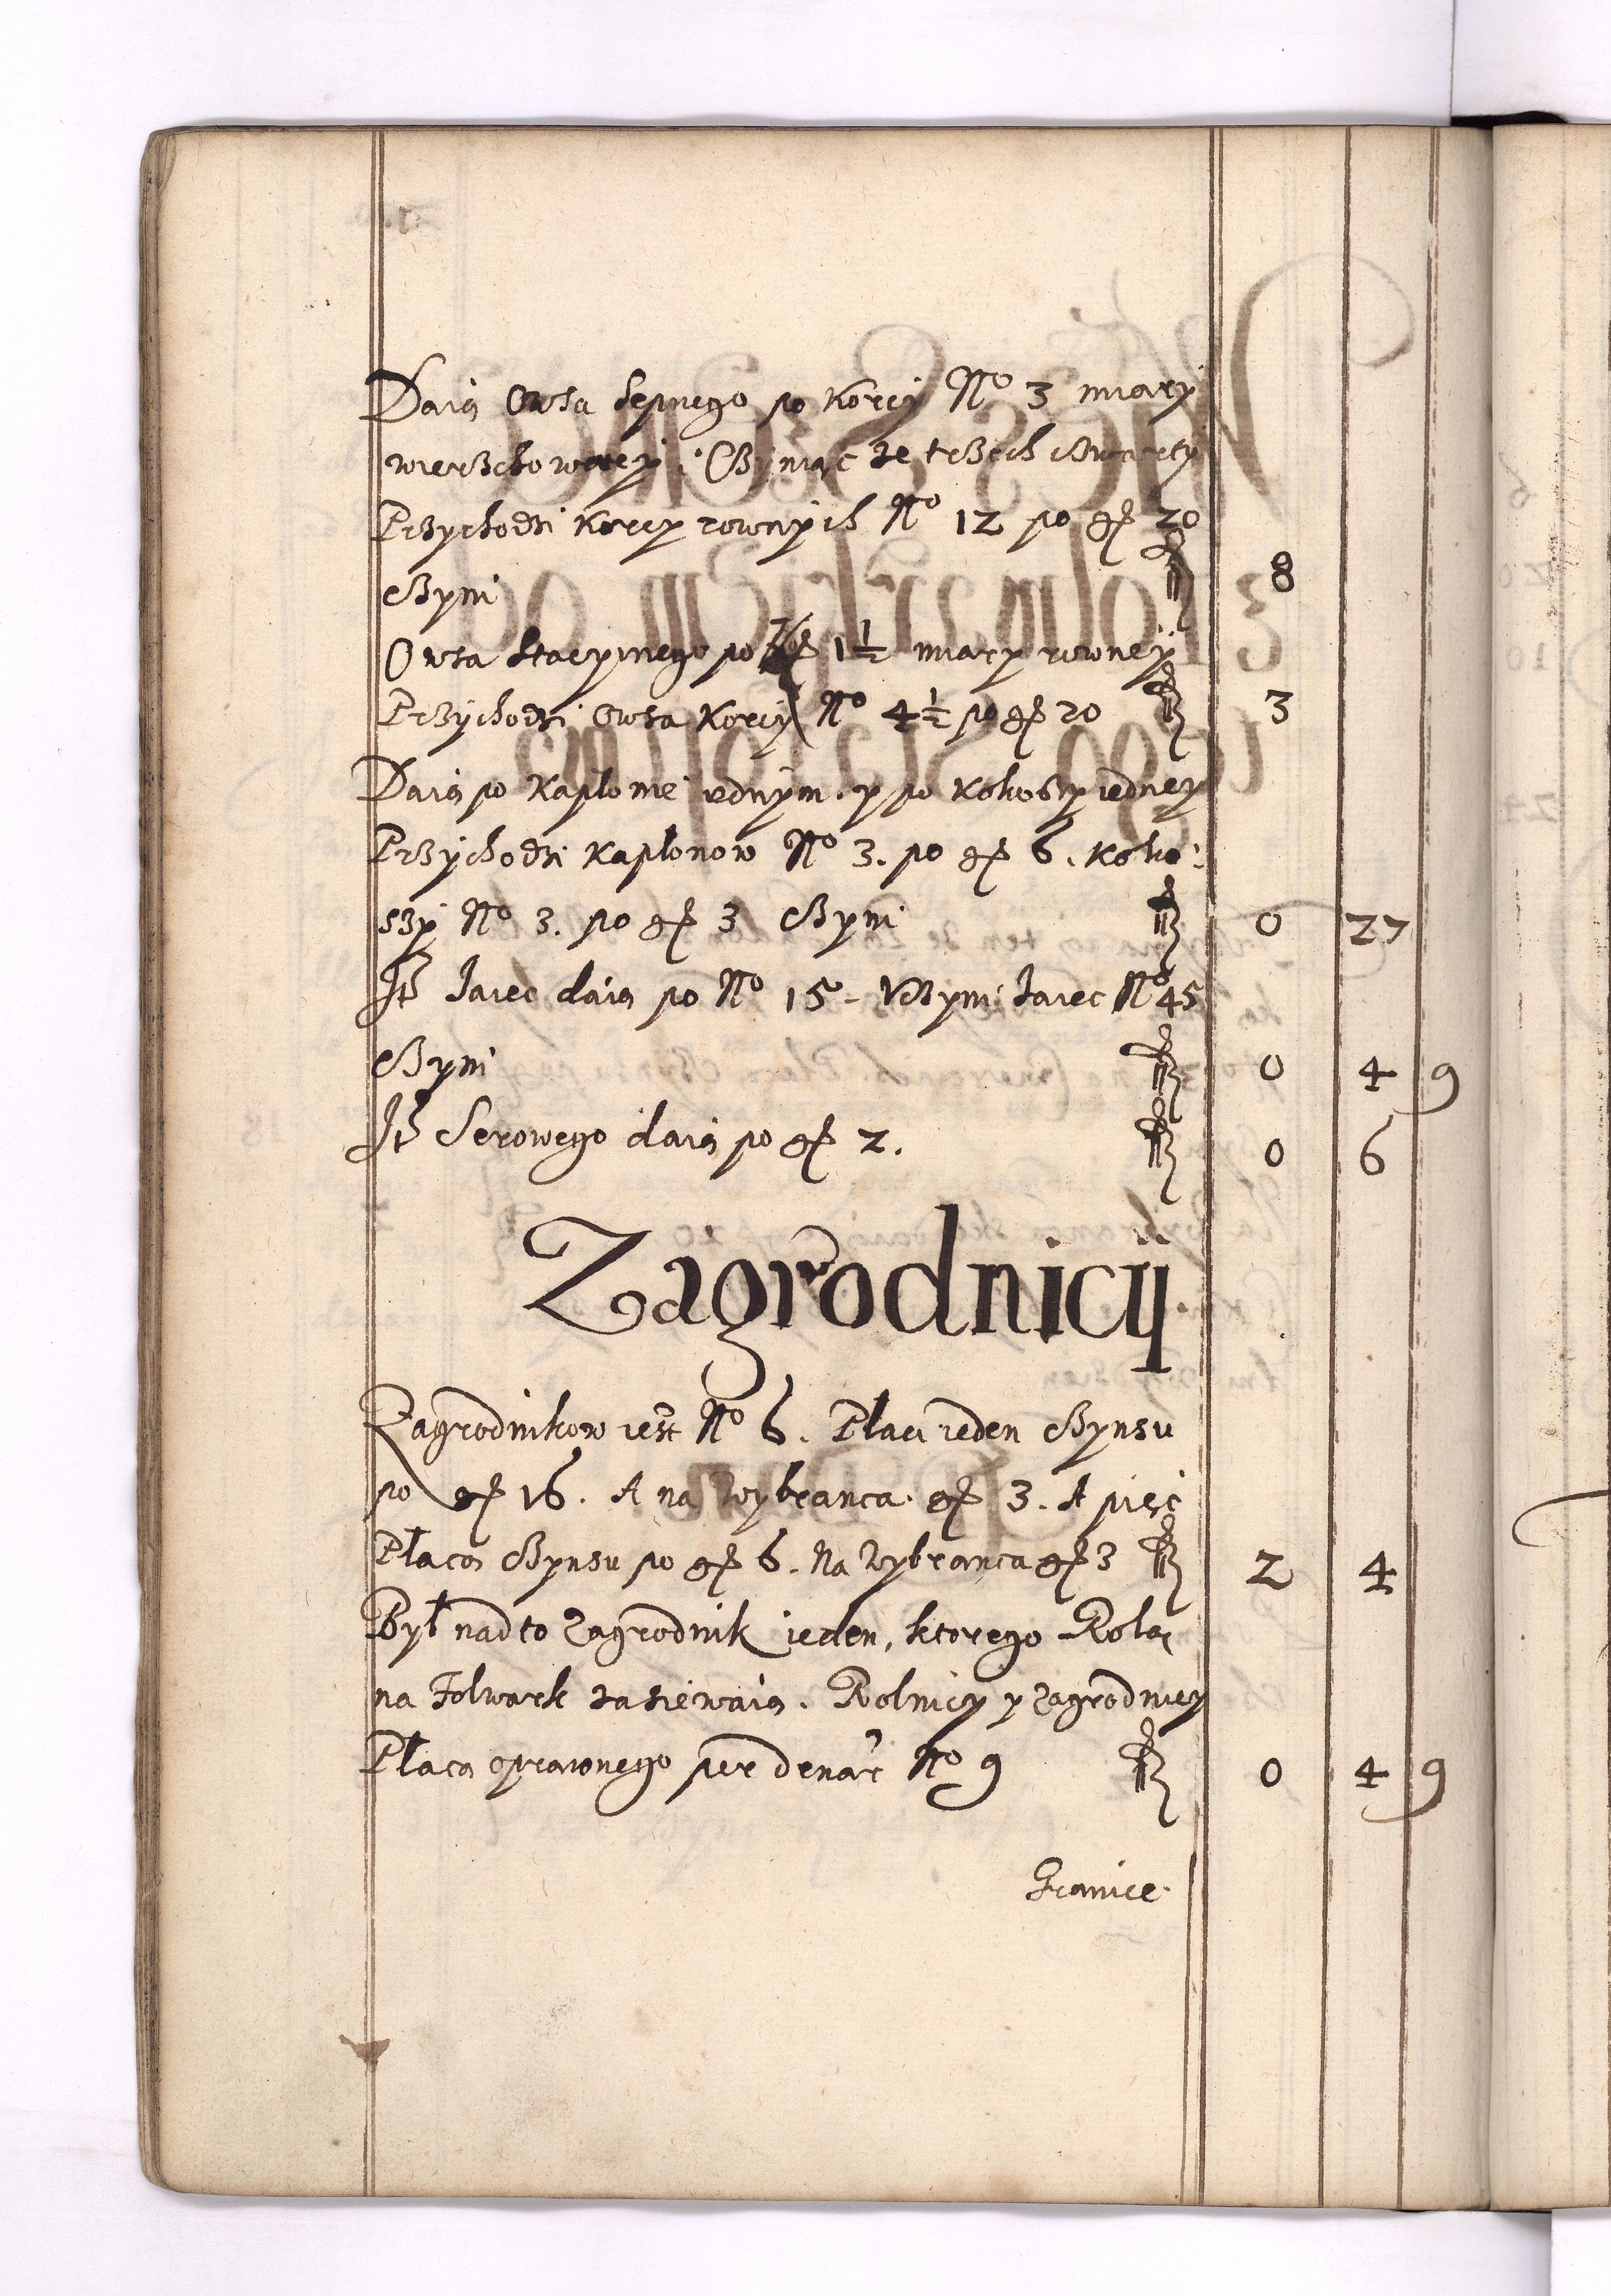 Daią Owsa sepnego po Korcy No 3 miary
wierzchowatey. Czyniąc ze trzech cztwarty
Przychodzi Korcy rownych No 12 po gr 20
Czyni f 8
Owsa stacyinego po 1½ miary rowney
Przychodzi Owsa Korcy No 4½ po gr 20 f 3
Daią po Kapłonie iednym. y po Kokoszy iedney
Przychodzi Kapłonow No 3. po gr 6. Koko:
szy No 3. po gr 3 Czyni f 0 27
It Jaiec daią po No 15 - Vczyni Jaiec No 45
Czyni f 0 4 9
It Serowego daią po gr 2. f 0 6
Zagrodnicy.
Zagrodnikow iest No 6. Płaci ieden Czynsu
po gr 16. A na Wybranca gr 3. A pięć
Płacą Czynsu po gr 6. Na Wybranca gr 3 f 2 4
Był nad to Zagrodnik ieden, ktorego Rolą
na Folwark zasiewaią. Rolnicy y Zagrodnicy
Płacą oprawnego per denar No 9 f 0 4 9
Granice.